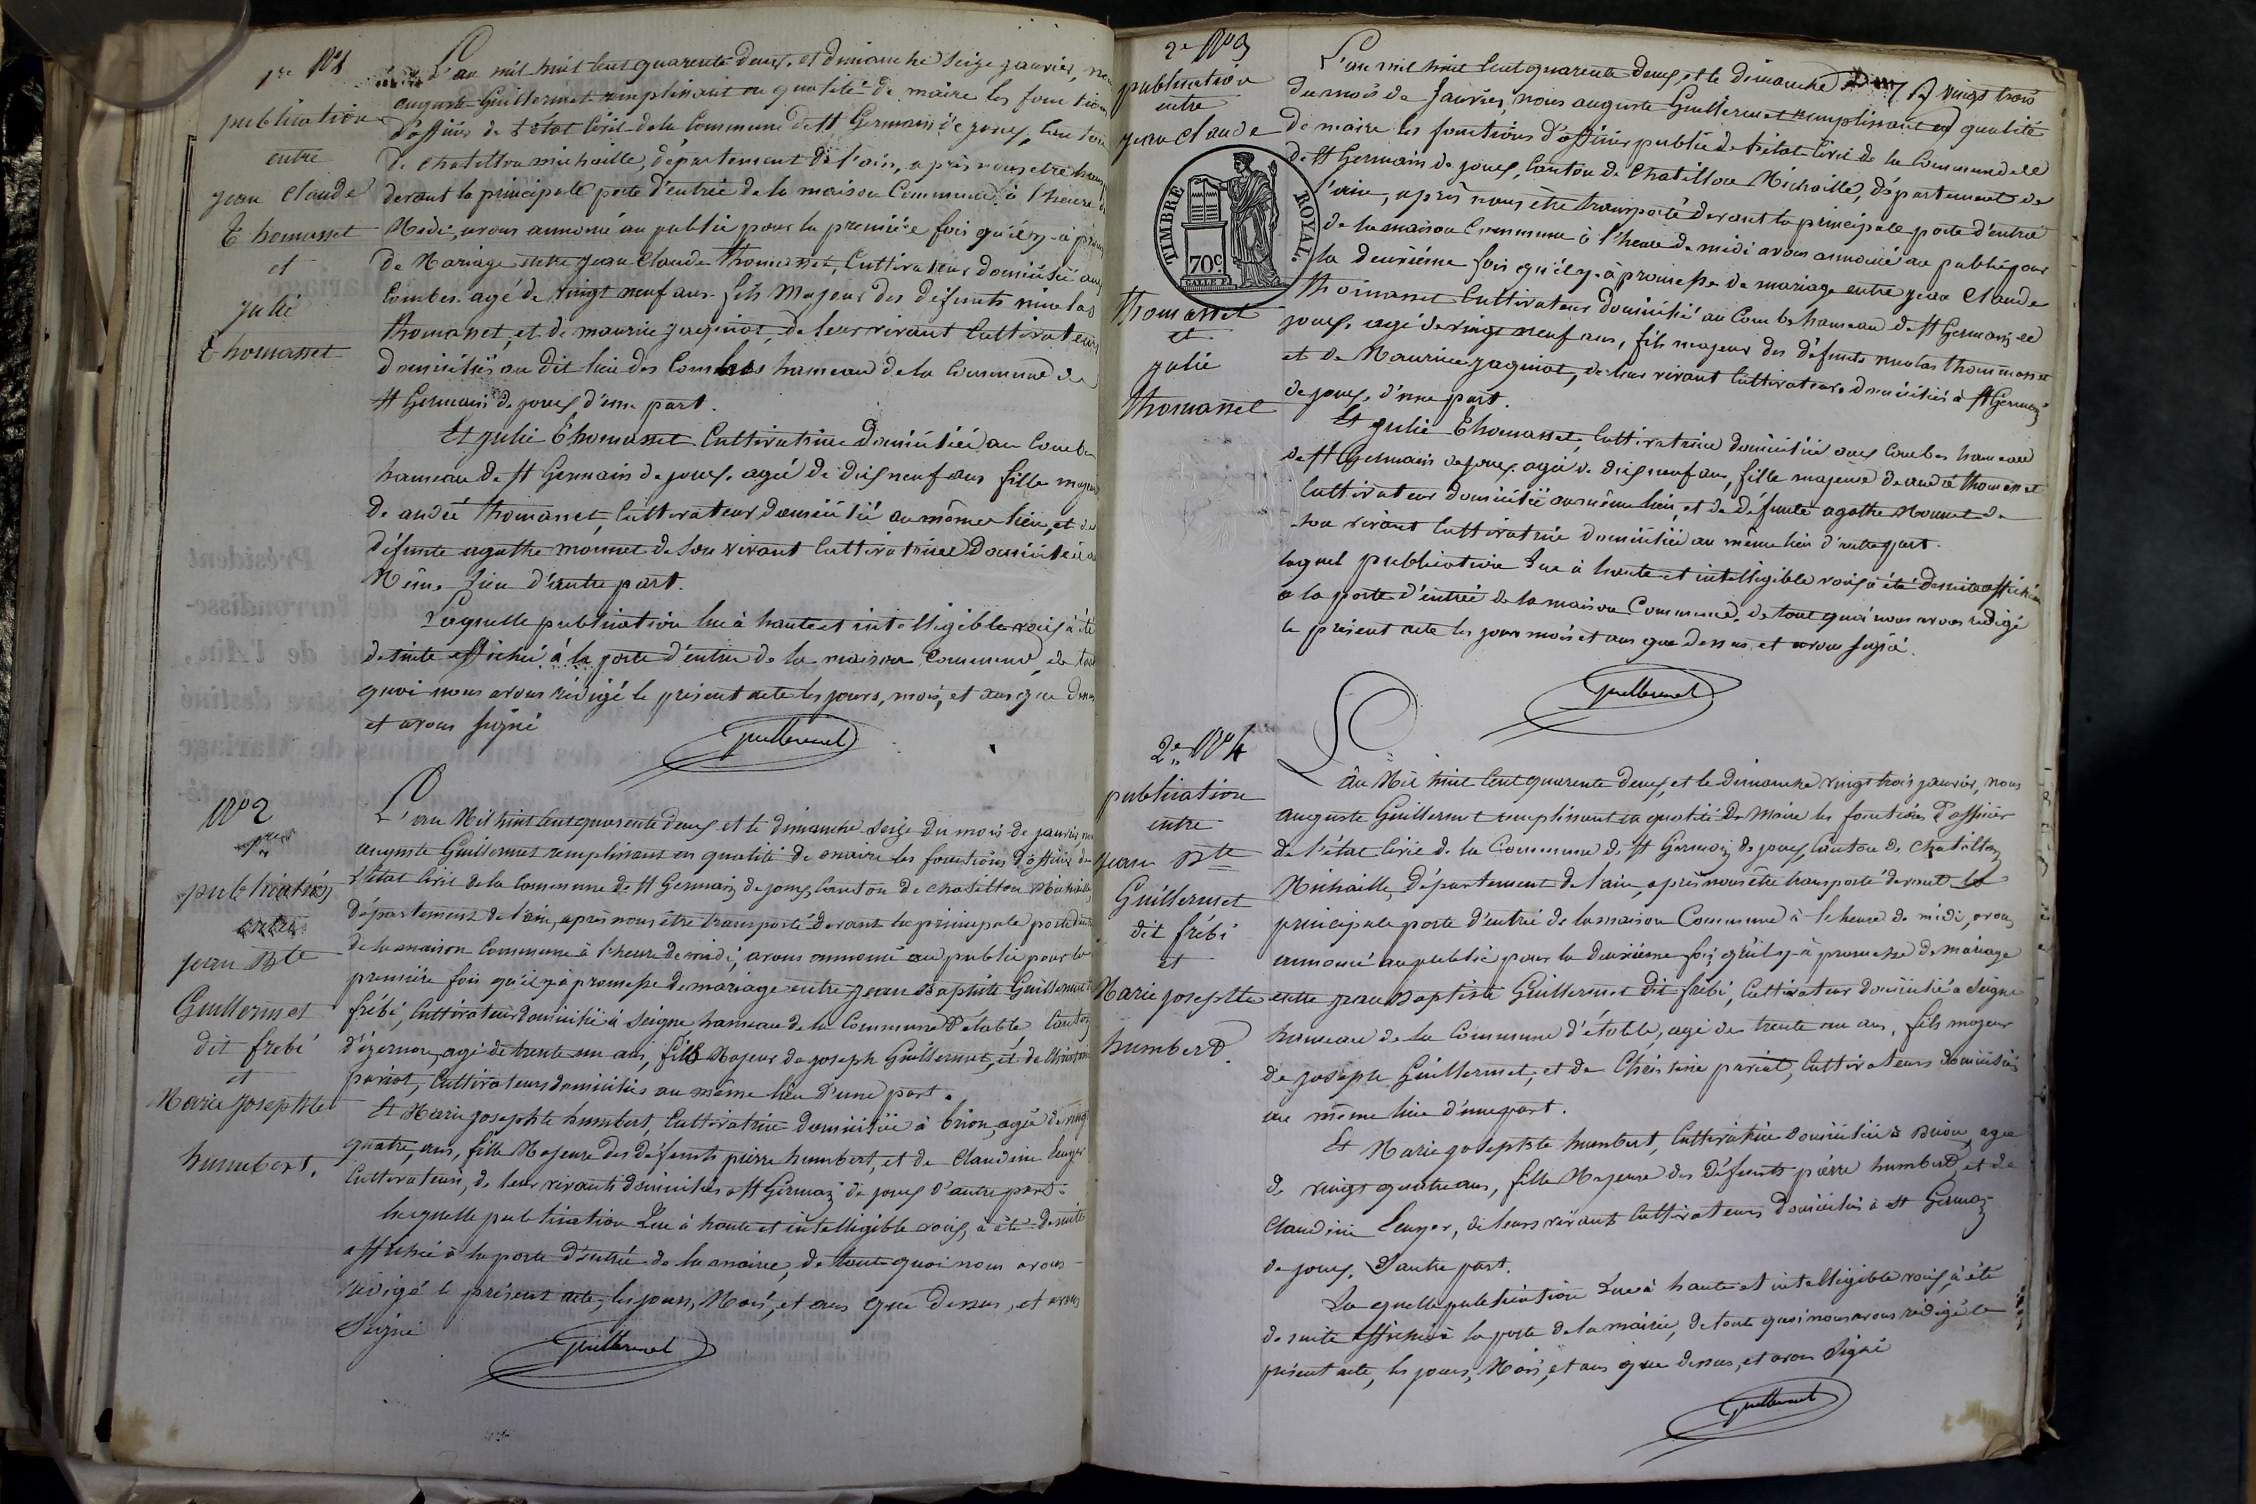 1re No 1
publication
entre
jean Claude
Thomasset
et
julie
Thomasset
L'an mil huit cent quarante deux, et dimanche seize janvier, nous
auguste Guillermet remplissant en qualité de maire les fonctions
d'officier de l'état Civil de la Commune de St Germain de joux, Canton
de chatillon michaille, département de l'ain, après nous etre transporté
devant la principale porte d'entrée de la maison Commune à l'heure de
Midi, avons annoncé au public pour la première fois qu'il y a promesse
de Mariage entre jean Claude Thomasset, Cultivateur domicilié aux
Combes agé de vingt neuf ans fils Majeur des défunts nicolas
thomasset, et de maurice jaquinot, de leur vivant Cultivateurs
domiciliés au dit lieu des Combes hameau de la Commune de
St Germain de joux d'une part.
Et julie Thomasset Cultivatrice Domiciliée au Combes
hameau de St Germain de joux, agée de dix neuf ans fille majeure
de andré Thomasset, Cultivateur domicilié au même lieu, et de
défunte agathe monnet de son vivant Cultivatrice Domiciliée au
Même Lieu d'autre part.
Laquelle publication lue à haute et intelligible voix à été
de suite affiché à la porte d'entrée de la maison Commune, de tout
quoi nous avons rédigé le présent acte les jours, mois, et ans que dessus
et avons signé
Guillermet
No 2
1re
publication
entre
jean Bte
Guillermet
dit frébi
et
Marie josephte
humbert.
L'an Mil huit cent quarente deux et le dimanche seize du mois de janvier nous
auguste Guillermet remplissant en qualité de maire les fonctions d'officier de
l'état Civil de la Commune de St Germain de joux, Canton de chatillon Michaille,
département de l'ain, après nous être transporté devant la principale porte d'entrée
de la maison Commune à l'heure de midi, avons annoncé au public pour la
première fois qu'il y a promesse de mariage entre jean Baptiste Guillermet dit
frébi, Cultivateur domicilié à Seigne hameau de la Commune d'étable Canton
d'izernore, agé de trente un ans, fils Majeur de joseph Guillermet, et de Christine
pariot, Cultivateurs domiciliés au même lieu d'une part.
Et Marie josephte humbert, Cultivatrice domiciliée à brion, agée de vingt
quatre, ans, fille Majeure des défunts pierre humbert, et de Claudine
Cultivateurs, de leur vivants domiciliés a St Germain de joux d'autre part.
Laquelle publication Lue à haute et intelligible voix, à été de suite
affiché à la porte d'entrée de la mairie, de toute quoi nous avons
rédigé le présent acte, les jours, Mois, et ans que dessus, et avons
Signé
Guillermet
2e No 3
publication
entre
jean Claude
TIMBRE ROYAL.
70c
Thomasset
et
julie
Thomasset
L'an mil huit Cent quarente deux, et le dimanche vingt trois
du mois de Janvier, nous auguste Guillermet remplissant en qualité
de maire les fonctions d'officier public de l'état Civil de la Commune
de St Germain de joux, Canton de Chatillon Michaille, département de
l'ain, après nous être transporté devant la principale porte d'entrée
de la maison Commune à l'heure de midi avons annoncé au public pour
la deuxième fois qu'il y a promesse de mariage entre jean Claude
Thomasset Cultivateur domicilié au Combe hameau de St Germain de
joux, agé de vingt neuf ans, fils majeur des défunts nicolas thommasset
et de Maurice jaquinot, de leur vivant Cultivateurs domiciliés à St Germain
de joux, d'une part.
Et julie Thomasset Cultivatrice domiciliée aux Combes hameau
de St Germain de joux agée de dix neuf ans, fille majeure de andré thomasset
Cultivateur domicilié au même lieu, et de défunte agathe Monnet de
son vivant Cultivatrice domiciliée au même lieu d'autre part.
laquel publication Lue à haute et intelligible voix à été de suite affichée
a la porte d'entrée de la maison Commune, de tout quoi nous avons rédigé
le présent acte les jours mois et ans que dessus et avons signé.
Guillermet
2e No 4
publication
entre
jean Bte
Guillermet
dit frébi
et
Marie josephte
humbert.
L'an Mil huit Cent quarente deux, et le dimanche vingt trois janvier, nous
auguste Guillermet remplissant en qualité de Maire les fonctions d'officier
de l'état Civil de la Commune de St Germain de joux, Canton de chatillon
Michaille, département de l'ain, après nous être transporté devant la
principale porte d'entrée de la maison Commune à l'heure de midi, avons
annoncé au public pour la deuxième fois, qu'il y a promesse de mariage
entre jean Baptiste Guillermet dit frébi, Cultivateur domicilié a Seigne
hameau de la Commune d'étable, agé de trente un ans, fils majeur
de joseph Guillermet, et de Christine pariot, Cultivateurs domiciliés
au même lieu d'une part.
Et Marie josephte humbert, Cultivatrice domiciliée à Brion, agée
de vingt quatre ans, fille Majeure des défunts pierre humbert, et de
Claudine de leurs vivants Cultivateurs domiciliés à St Germain
de joux, d'autre part.
La quelle publication Lue à haute et intelligible voix, à été
de suite affiché à la porte de la mairie, de toute quoi nous avons rédigé le
présent acte, les jours, Mois, et ans que dessus, et avons Signé
Guillermet